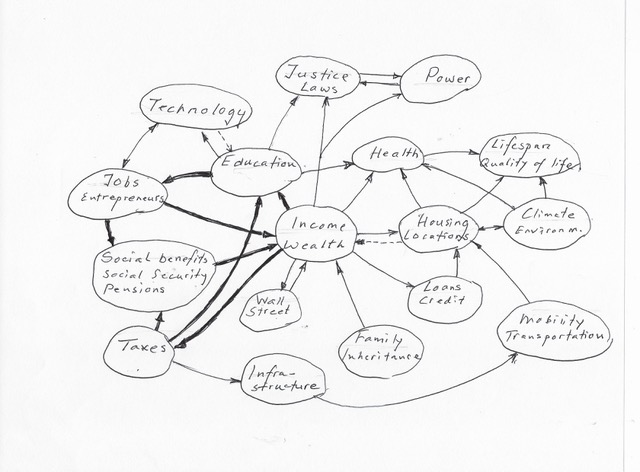 Justice
Laws
Power
Technology
Education
Health
Lifespan
Quality of life
Jobs
Entrepreneurs
Income
Wealth
Housing
Locations
Climate
Environm.
Social benefits
Social Security
Pensions
Wall
Street
Loans
Credit
Mobility
Transportation
Taxes
Family
Inheritance
Infra-
structure